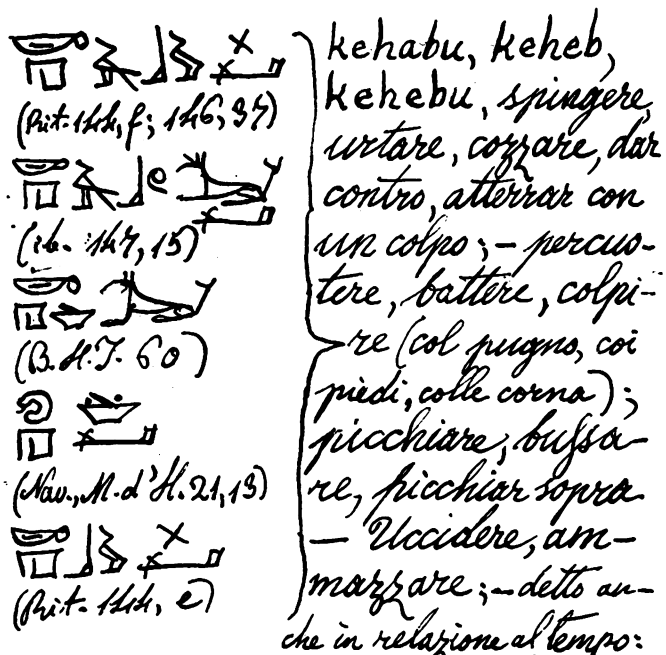 (Rit. 144, f; 146, 37)
(ib. 147, 15)
(B.H.J. 60)
(Nav., M. d'H. 21, 13)
(Rit. 144, e)
kehabu, keheb,
kehebu, spingere,
urtare, cozzare, dar
contro, atterrar con
un colpo; – percuo-
tere, battere, colpi-
re (col pugno, coi
piedi, colle corna);
picchiare, bussa-
re, picchiar sopra
— Uccidere, am-
mazzare; – detto an-
che in relazione al tempo: